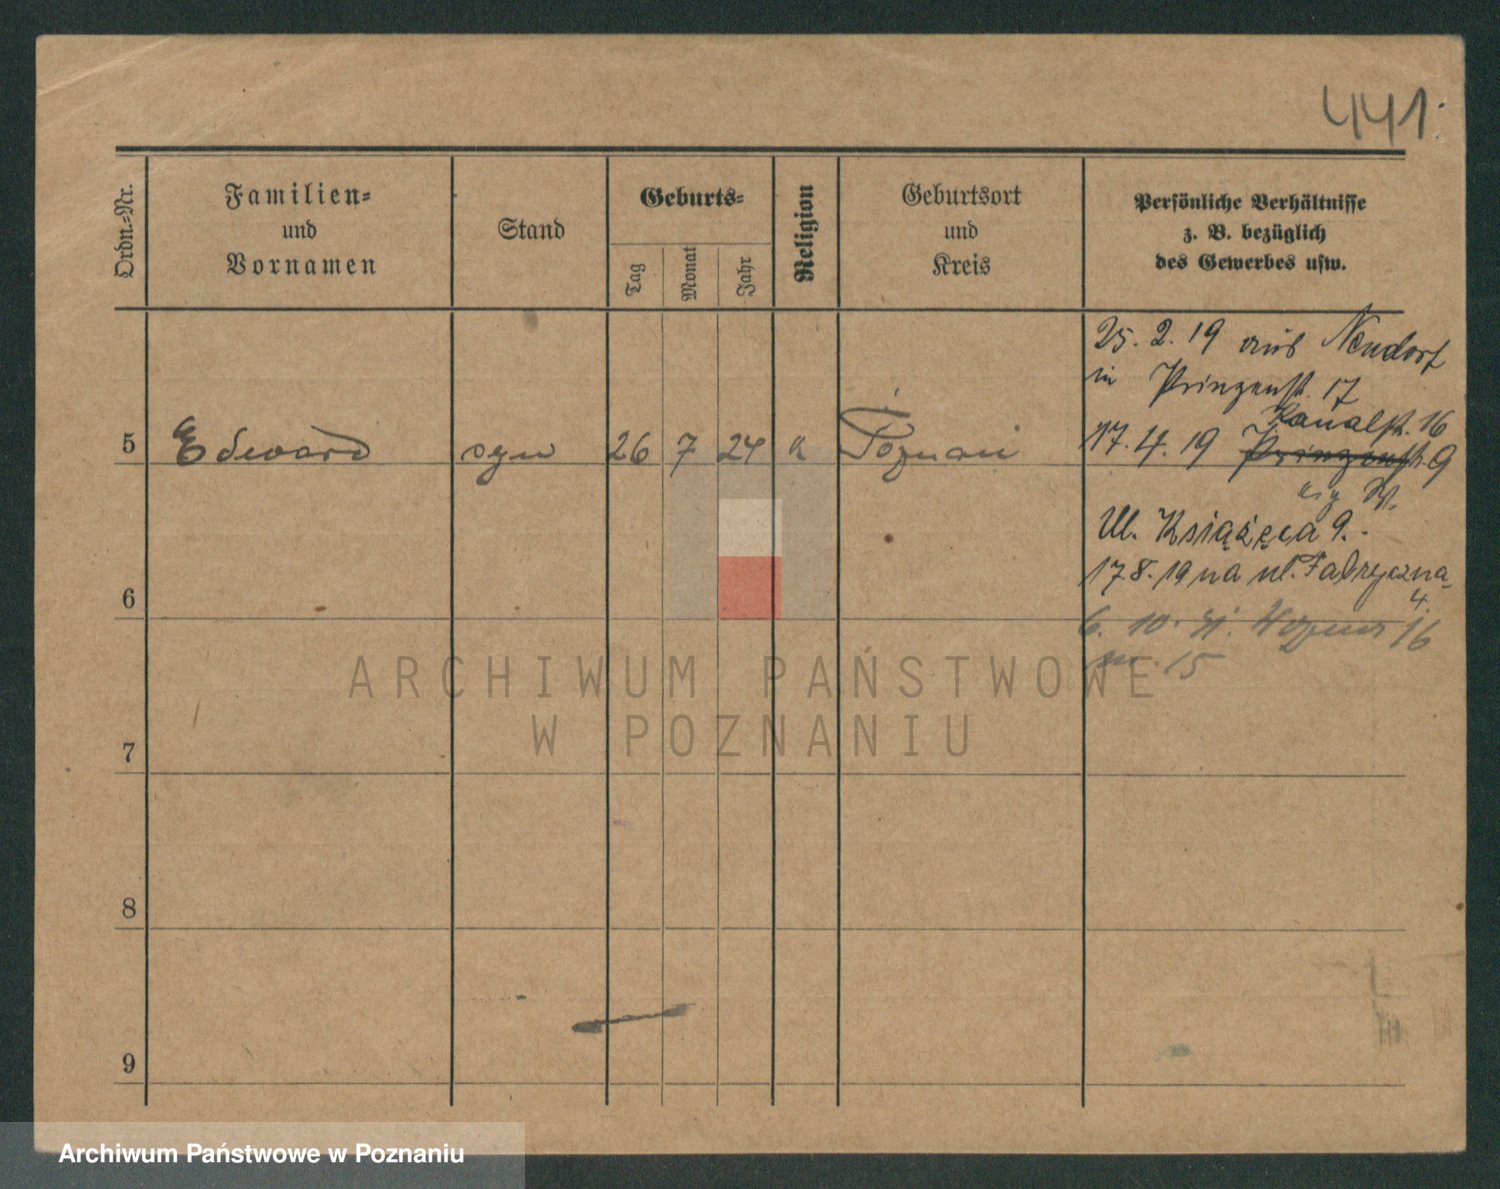 441.
Ordn.=Nr.
Familien=
und
Vornamen
Stand
Geburts=
Tag
Monat
Jahr
Religion
Geburtsort
und
Kreis
Persönliche Verhältnisse
z. B. bezüglich
des Gewerbes usw.
25. 2. 19 aus Neudorf
in Prinzenstr. 17
Kanalstr. 16
5 Edward syn 26 7 24 k Poznań 17. 4. 19 Prinzenstr. 9
Ul. Książęca 9.
17.8.19 na ul. Fabryczna
4.
6
6. 10. 16
m. 15
ARCHIWUM PAŃSTWOWE
W POZNANIU
7
8
9
Archiwum Państwowe w Poznaniu